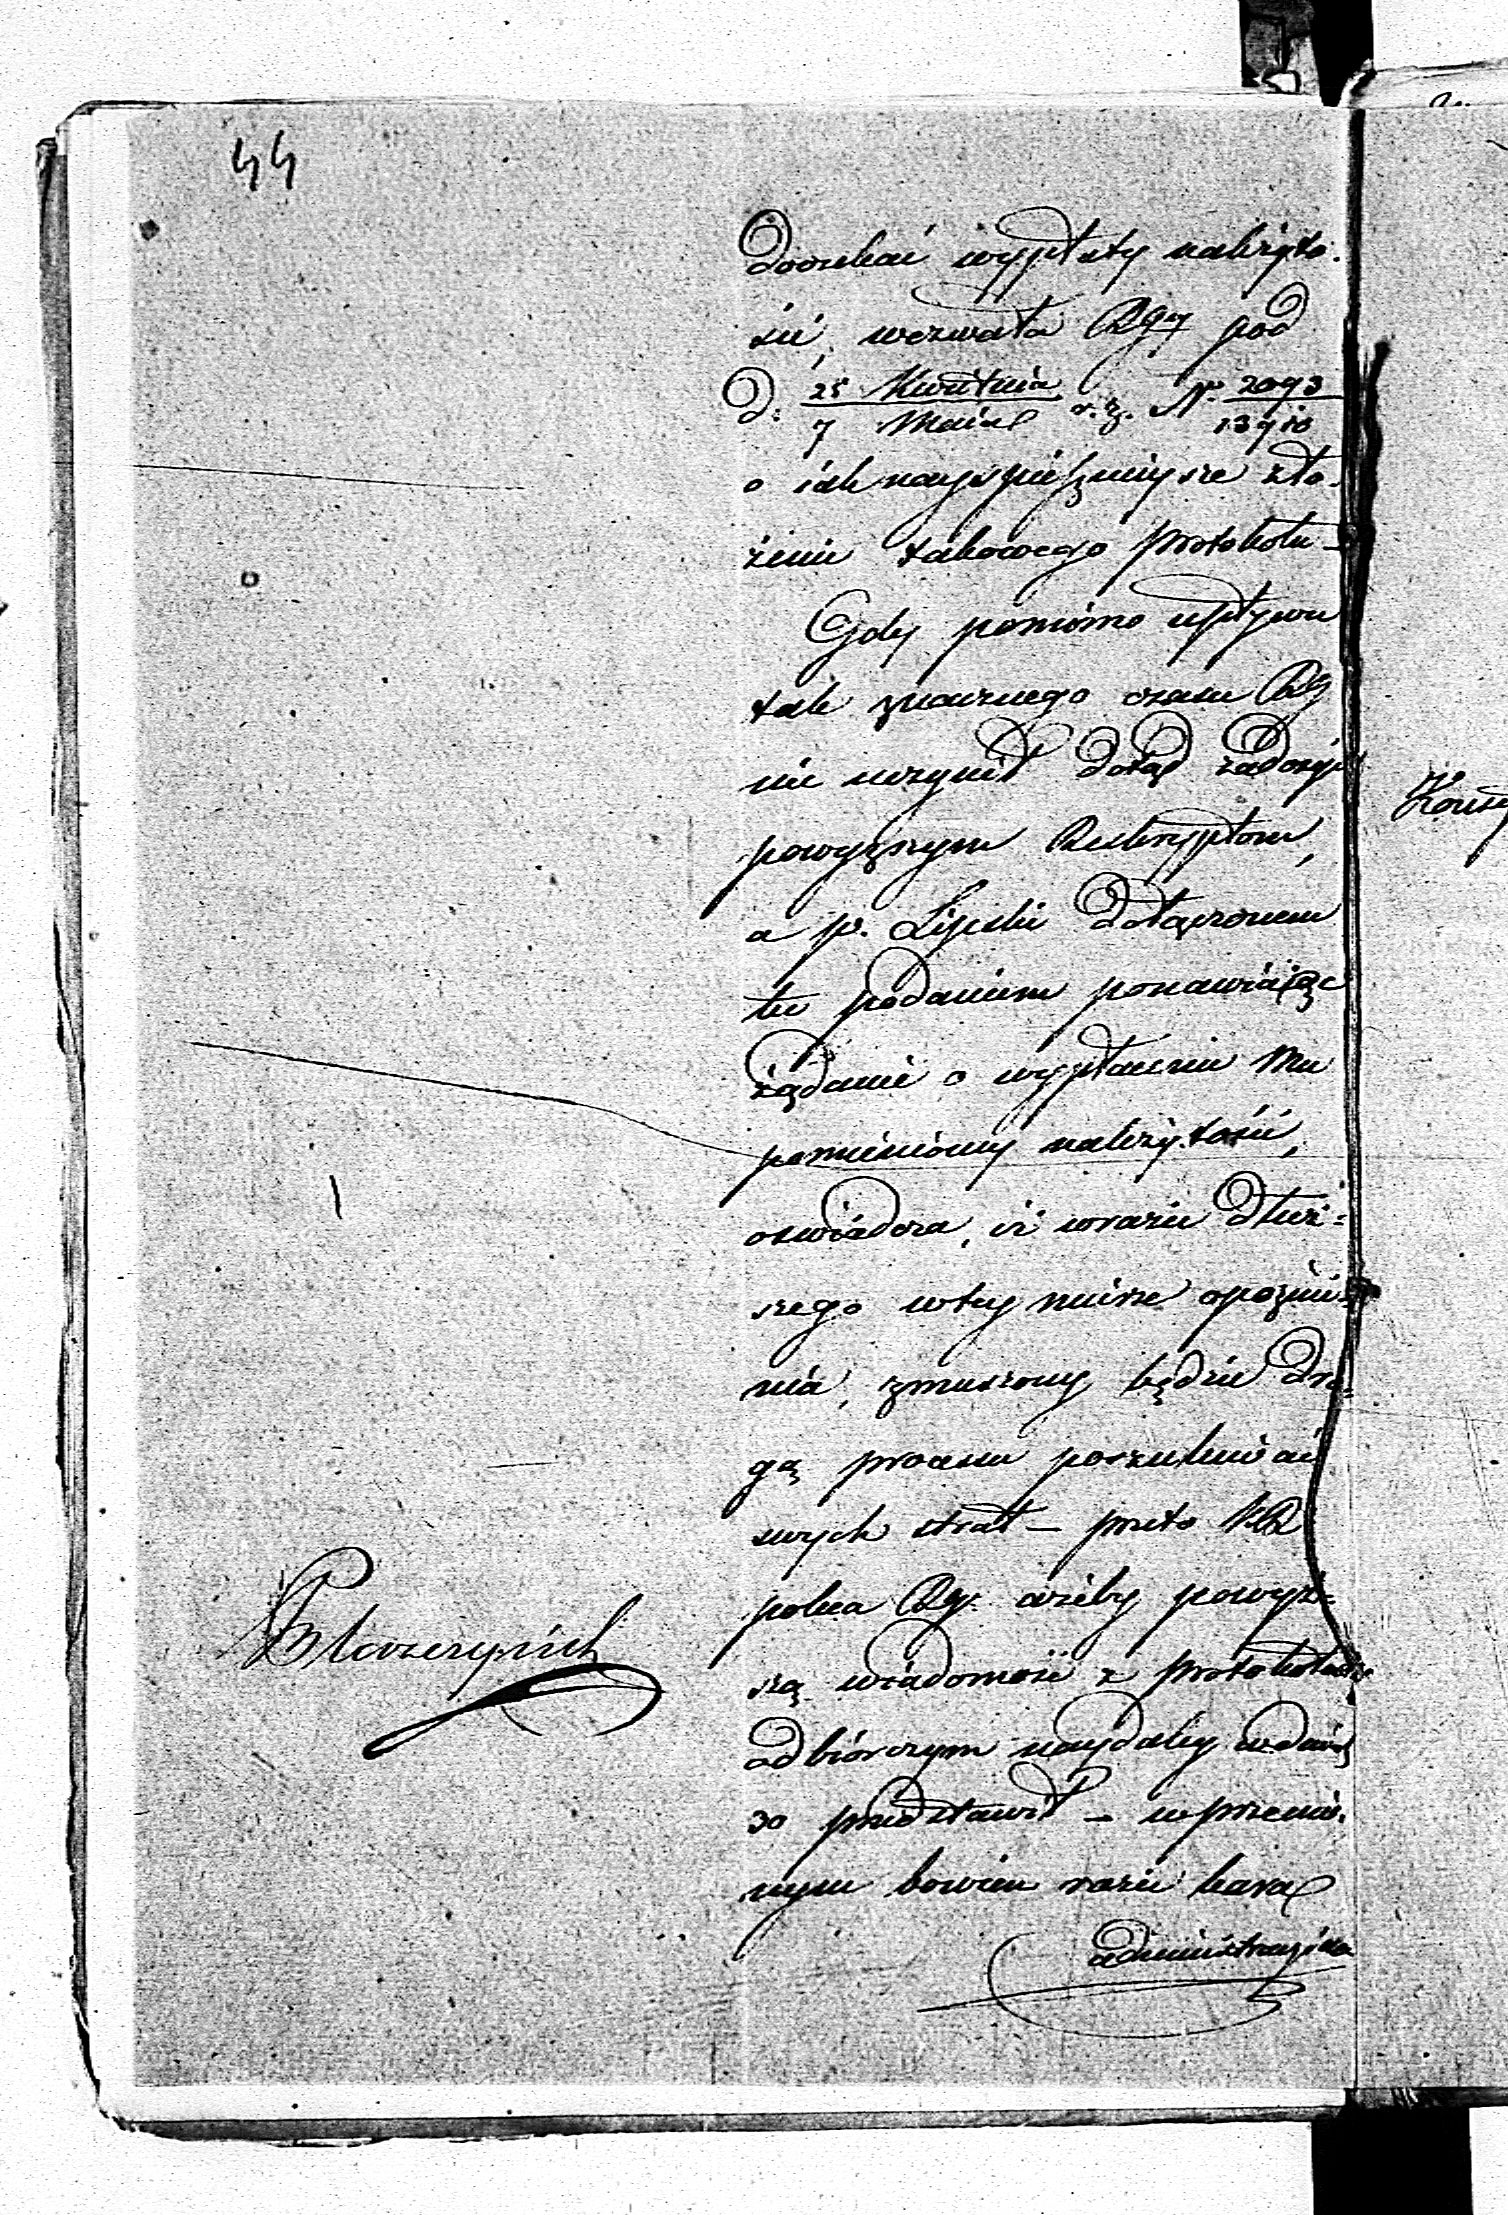 44
doczekać wypłaty należyto-
ści, wezwała RGgo pod
d: 25 Kwietnia / 7 Maia r. z. N. 2093 / 13910
o iak nayśpieszniejsze zło-
żenie takowego protokołu –
Gdy pomimo upływu
tak znacznego czasu RG
nie uczynił dotąd zadosyć
powyższym Reskryptom,
a p. Lipski dołączonem
tu podaniem ponawiaiąc
żądanie o wypłacenie Mu
pomienioney należytości,
oswiadcza, iż wrazie dłuż-
szego wtey mierze opoźnie-
nia, zmuszony będzie dro-
gą processu poszukiwać
swych strat – przeto KR
poleca RGr. ażeby powyż-
szą wiadomość z protokołem
odbiorczym naydaley w dni
30 przedstawił – w przeciw-
nym bowiem razie kara
administracyina
Konsy